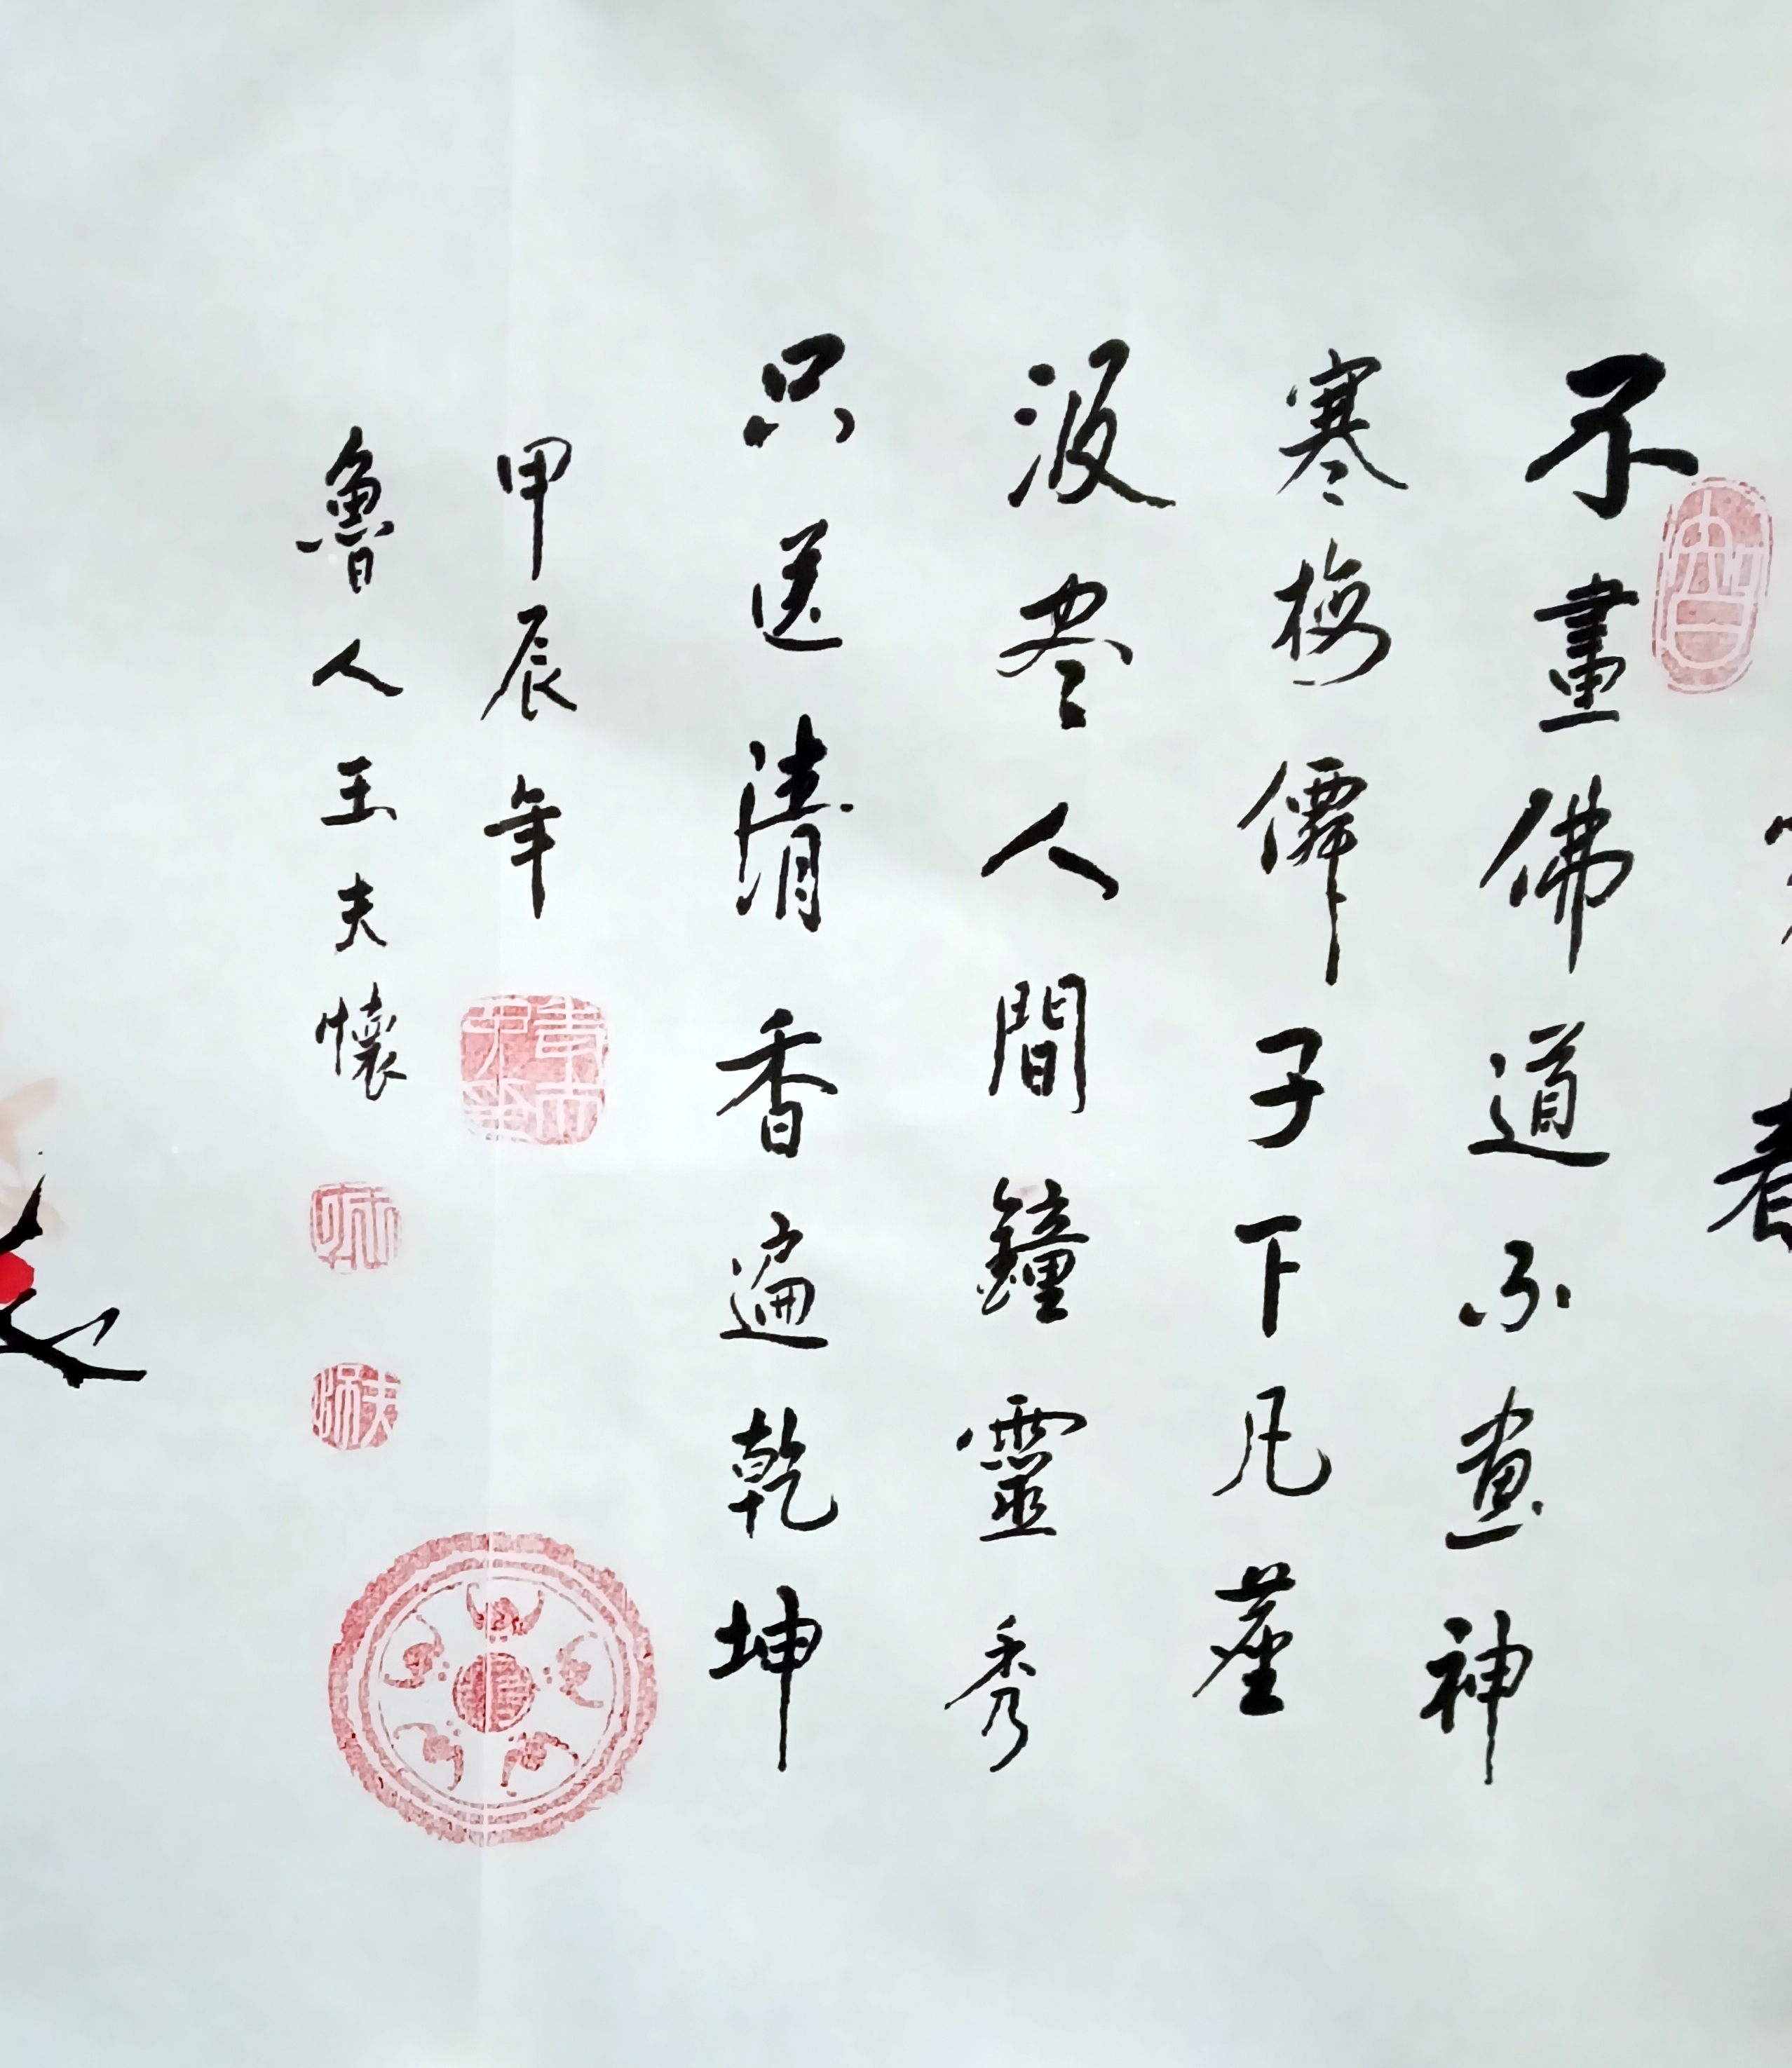 春
不畫佛道不畫神
寒梅僊子下凡塵
汲尽人間鐘靈秀
只送清香遍乾坤
甲辰年
魯人王夫懷